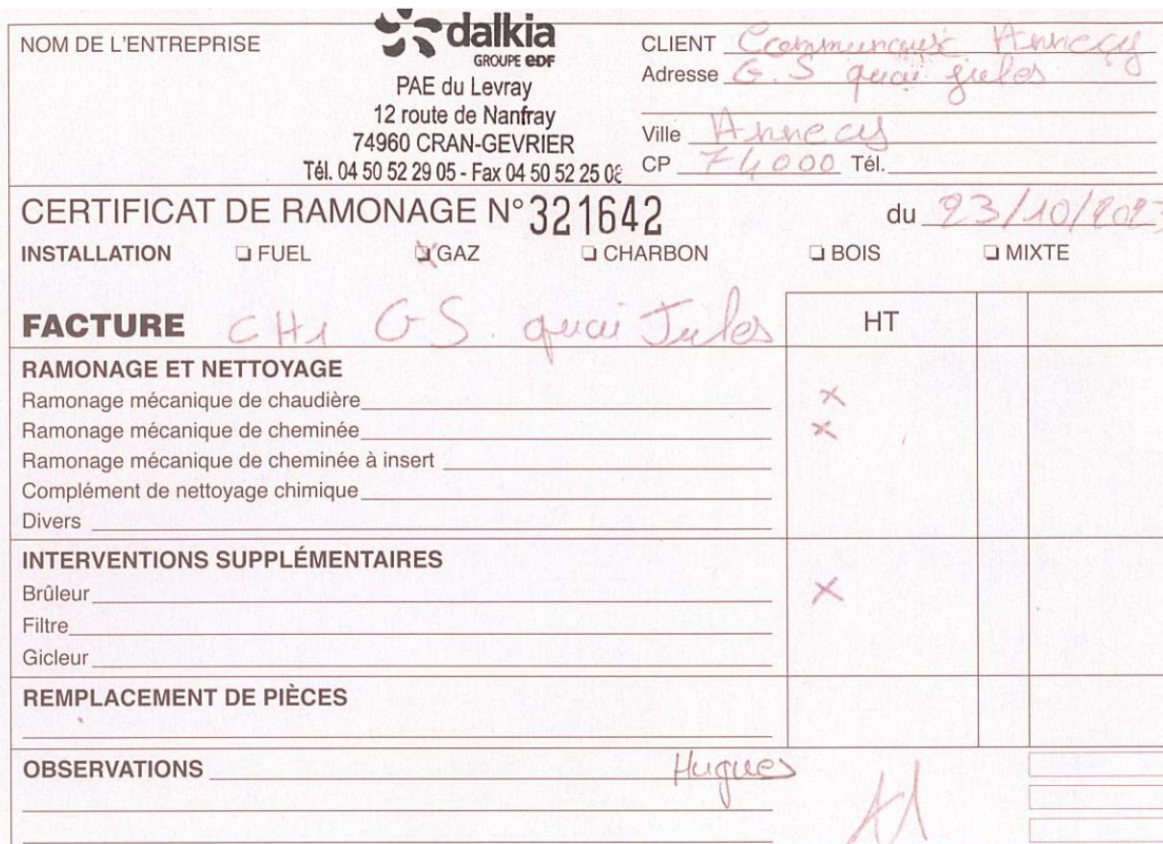 NOM DE L'ENTREPRISE
dalkia
GROUPE EDF
PAE du Levray
12 route de Nanfray
74960 CRAN-GEVRIER
Tél. 04 50 52 29 05 - Fax 04 50 52 25 08
CLIENT Annecy
Adresse G.S quai jules
Ville Annecy
CP 74000 Tél.
CERTIFICAT DE RAMONAGE N° 321642 du 23/10/202
INSTALLATION FUEL GAZ CHARBON BOIS MIXTE
FACTURE CH1 GS quai Jules HT
RAMONAGE ET NETTOYAGE
Ramonage mécanique de chaudière X
Ramonage mécanique de cheminée X
Ramonage mécanique de cheminée à insert
Complément de nettoyage chimique
Divers
INTERVENTIONS SUPPLÉMENTAIRES
Brûleur X
Filtre
Gicleur
REMPLACEMENT DE PIÈCES
OBSERVATIONS Hugues